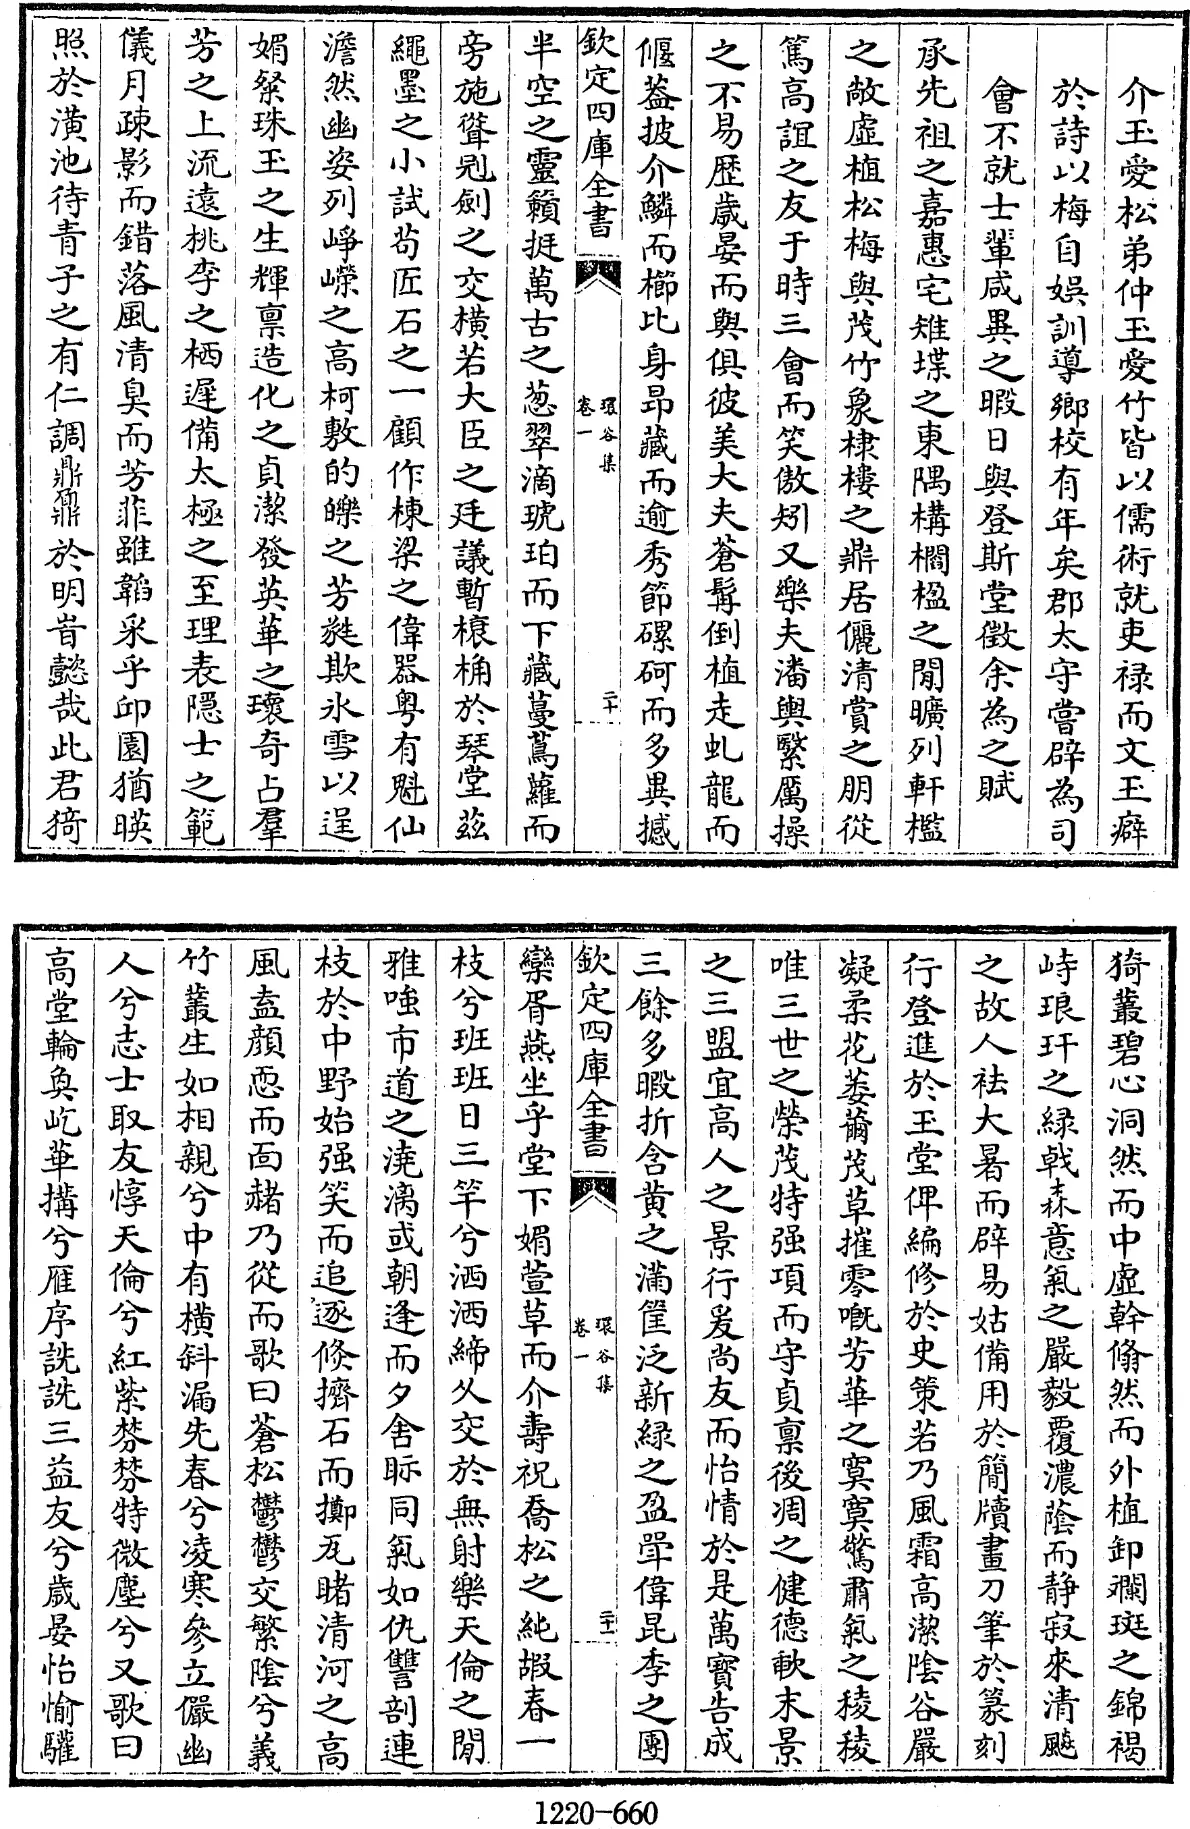 介玉愛松弟仲玉愛竹皆以儒術就吏禄而文玉癖
於詩以梅自娛訓導鄉校有年矣郡太守嘗辟為司
會不就士輩咸異之暇日與登斯堂徵余為之賦
承先祖之嘉惠宅雉堞之東隅構櫩楹之閒曠列軒檻
之敞虛植松梅與茂竹象棣樓之鼎居儷清賞之朋從
篤高誼之友于時三會而笑傲矧又樂夫潘輿繄厲操
之不易歷歲晏而與俱彼美大夫蒼髯倒植走虬龍而
偃蓋披介鱗而櫛比身昂藏而逾秀節磥砢而多異撼
欽定四庫全書
環谷集
卷一
二十
半空之靈籟挺萬古之葱翠滴琥珀而下藏蔓蔦蘿而
旁施聳剋劍之交横若大臣之廷議暫榱桷於琴堂兹
繩墨之小試苟匠石之一顧作棟梁之偉器粤有魁仙
澹然幽姿列崢嶸之高柯敷的皪之芳蕤欺氷雪以逞
媚粲珠玉之生輝禀造化之貞潔發英華之瓌奇占羣
芳之上流遠桃李之栖遲備太極之至理表隱士之範
儀月疎影而錯落風清臭而芳菲雖韜采乎邱園猶暎
照於潢池待青子之有仁調鼎鼐於明旹懿哉此君猗
猗叢碧心洞然而中虛幹翛然而外植卸斕斑之錦褐
峙琅玕之緑戟森意氣之嚴毅覆濃蔭而静寂來清飈
之故人袪大暑而辟易姑備用於簡牘畫刀筆於篆刻
行登進於玉堂俾編修於史策若乃風霜高潔陰谷嚴
凝柔花萎薾茂草摧零嘅芳華之寞寞驚肅氣之稜稜
唯三世之榮茂特强項而守貞禀後凋之健德軼末景
之三盟宜高人之景行爰尚友而怡情於是萬寶告成
三餘多暇折含黄之滿筐泛新緑之盈斝偉昆季之團
欽定四庫全書
環谷集
卷一
二十一
欒胥燕坐乎堂下媚萱草而介壽祝喬松之純嘏春一
枝兮班班日三竿兮洒洒締久交於無射樂天倫之閒
雅嗤市道之澆漓或朝逢而夕舍眎同氣如仇讐剖連
枝於中野始强笑而追逐倏擠石而擲瓦睹清河之高
風盍顔恧而面赭乃從而歌曰蒼松鬱鬱交繁陰兮義
竹叢生如相親兮中有横斜漏先春兮凌寒參立儼幽
人兮志士取友惇天倫兮紅紫棼棼特微塵兮又歌曰
高堂輪奐屹華搆兮雁序詵詵三益友兮歲晏怡愉驩
1220-660